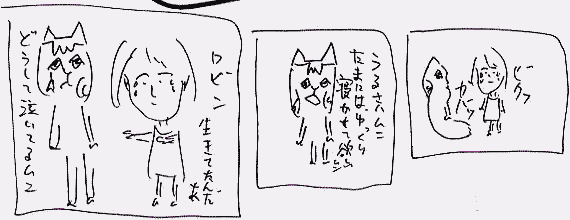 ビクッ
ガバッ
うるさいムニ
たまにはゆっくり
寝かせて欲しいムニ
ロビン
生きてたんだね
どうして泣いてるムニ